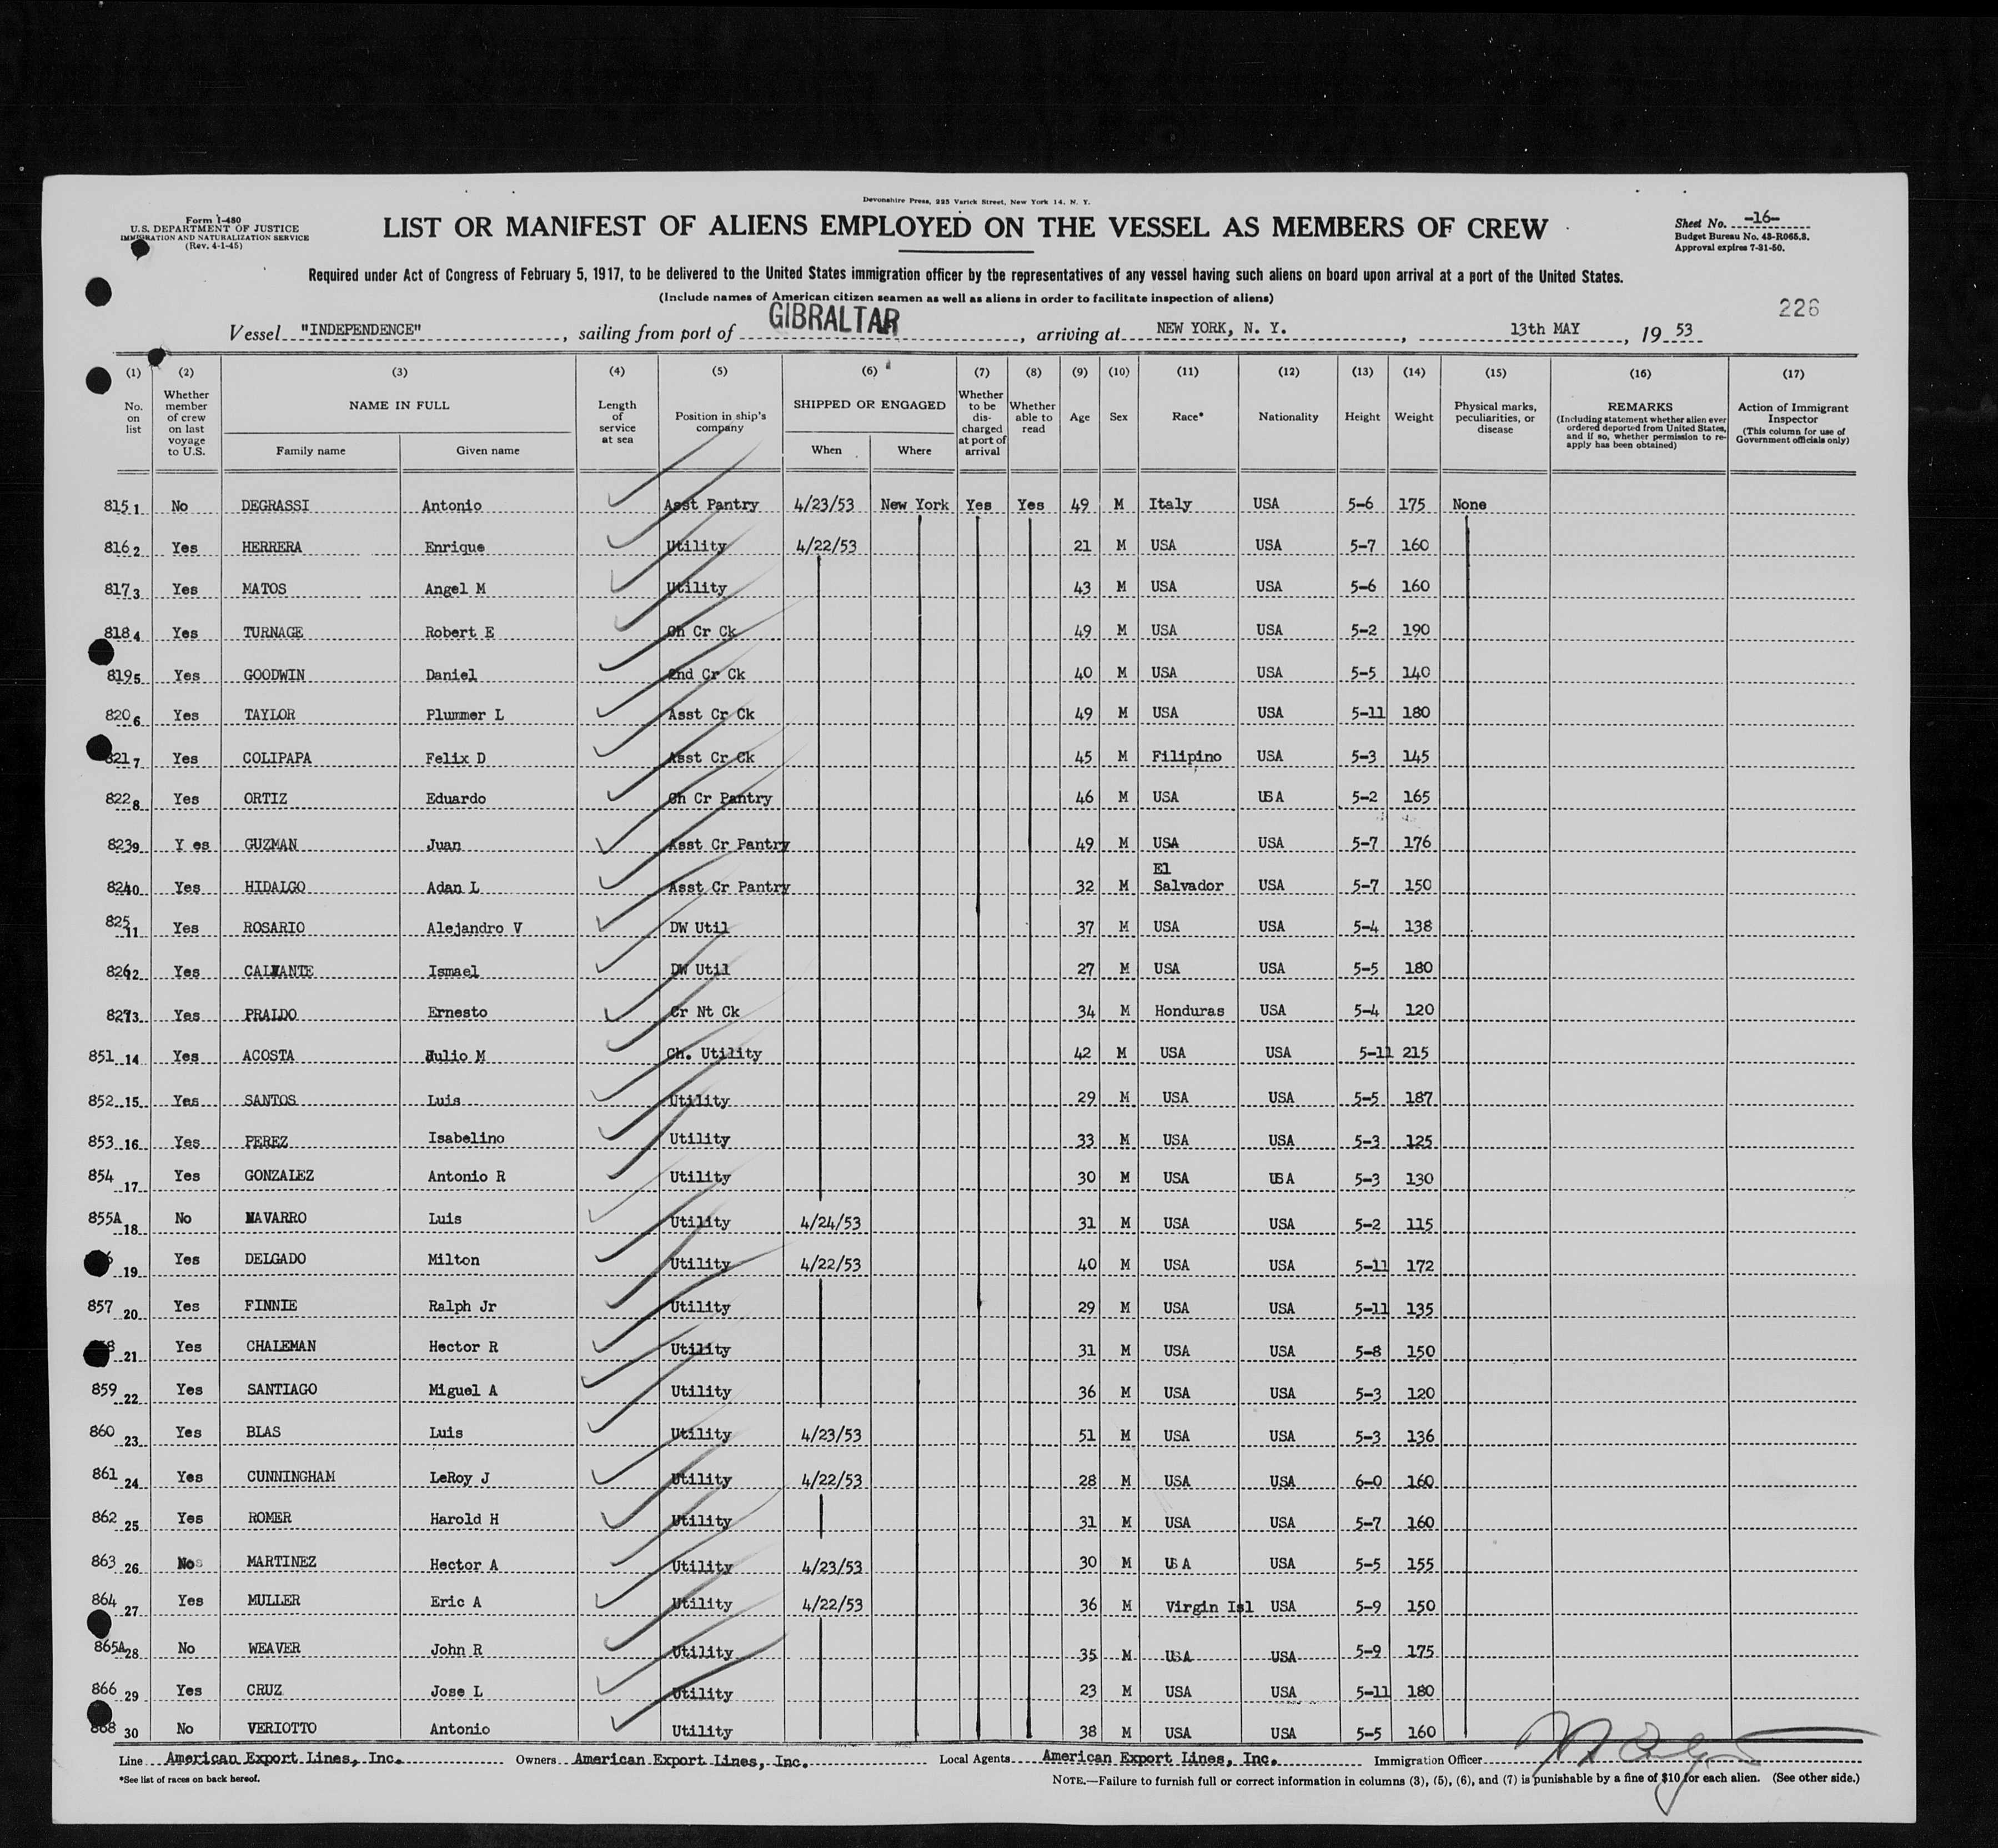 Devonshire Press, 225 Varick Street, New York 14, N. Y.
Form I-480
U.S. DEPARTMENT OF JUSTICE
IMMIGRATION AND NATURALIZATION SERVICE
(Rev. 4-1-45)
LIST OR MANIFEST OF ALIENS EMPLOYED ON THE VESSEL AS MEMBERS OF CREW
Sheet No. -16-
Budget Bureau No. 43-R065.3.
Approval expires 7-31-50.
Required under Act of Congress of February 5, 1917, to be delivered to the United States immigration officer by the representatives of any vessel having such aliens on board upon arrival at a port of the United States.
(Include names of American citizen seamen as well as aliens in order to facilitate inspection of aliens)
226
Vessel "INDEPENDENCE", sailing from port of GIBRALTAR, arriving at NEW YORK, N. Y., 13th MAY, 19 53
(1) (2) (3) (4) (5) (6) (7) (8) (9) (10) (11) (12) (13) (14) (15) (16) (17)
No. on list
Whether member of crew on last voyage to U.S.
NAME IN FULL
Family name
Given name
Length of service at sea
Position in ship's company
SHIPPED OR ENGAGED
When
Where
Whether to be discharged at port of arrival
Whether able to read
Age
Sex
Race*
Nationality
Height
Weight
Physical marks, peculiarities, or disease
REMARKS
(Including statement whether alien ever ordered deported from United States, and if so, whether permission to re-apply has been obtained)
Action of Immigrant Inspector
(This column for use of Government officials only)
815 1 No DEGRASSI Antonio Asst Pantry 4/23/53 New York Yes Yes 49 M Italy USA 5-6 175 None
816 2 Yes HERRERA Enrique Utility 4/22/53 21 M USA USA 5-7 160
817 3 Yes MATOS Angel M Utility 43 M USA USA 5-6 160
818 4 Yes TURNAGE Robert E Ch Cr Ck 49 M USA USA 5-2 190
819 5 Yes GOODWIN Daniel 2nd Cr Ck 40 M USA USA 5-5 140
820 6 Yes TAYLOR Plummer L Asst Cr Ck 49 M USA USA 5-11 180
821 7 Yes COLIPAPA Felix D Asst Cr Ck 45 M Filipino USA 5-3 145
822 8 Yes ORTIZ Eduardo Ch Cr Pantry 46 M USA USA 5-2 165
823 9 Y es GUZMAN Juan Asst Cr Pantry 49 M USA USA 5-7 176
824 10 Yes HIDALGO Adan L Asst Cr Pantry 32 M El Salvador USA 5-7 150
825 11 Yes ROSARIO Alejandro V DW Util 37 M USA USA 5-4 138
826 12 Yes Ismael DW Util 27 M USA USA 5-5 180
827 13 Yes PRALDO Ernesto Cr Nt Ck 34 M Honduras USA 5-4 120
851 14 Yes ACOSTA Julio M Ch. Utility 42 M USA USA 5-11 215
852 15 Yes SANTOS Luis Utility 29 M USA USA 5-5 187
853 16 Yes PEREZ Isabelino Utility 33 M USA USA 5-3 125
854 17 Yes GONZALEZ Antonio R Utility 30 M USA USA 5-3 130
855A 18 No NAVARRO Luis Utility 4/24/53 31 M USA USA 5-2 115
19 Yes DELGADO Milton Utility 4/22/53 40 M USA USA 5-11 172
857 20 Yes FINNIE Ralph Jr Utility 29 M USA USA 5-11 135
21 Yes CHALEMAN Hector R Utility 31 M USA USA 5-8 150
859 22 Yes SANTIAGO Miguel A Utility 36 M USA USA 5-3 120
860 23 Yes BLAS Luis Utility 4/23/53 51 M USA USA 5-3 136
861 24 Yes CUNNINGHAM LeRoy J Utility 4/22/53 28 M USA USA 6-0 160
862 25 Yes ROMER Harold H Utility 31 M USA USA 5-7 160
863 26 No MARTINEZ Hector A Utility 4/23/53 30 M USA USA 5-5 155
864 27 Yes MULLER Eric A Utility 4/22/53 36 M Virgin Isl USA 5-9 150
865A 28 No WEAVER John R Utility 35 M USA USA 5-9 175
866 29 Yes CRUZ Jose L Utility 23 M USA USA 5-11 180
868 30 No VERIOTTO Antonio Utility 38 M USA USA 5-5 160
Line American Export Lines, Inc. Owners American Export Lines, Inc. Local Agents American Export Lines, Inc. Immigration Officer
*See list of races on back hereof.
NOTE.—Failure to furnish full or correct information in columns (3), (5), (6), and (7) is punishable by a fine of $10 for each alien. (See other side.)